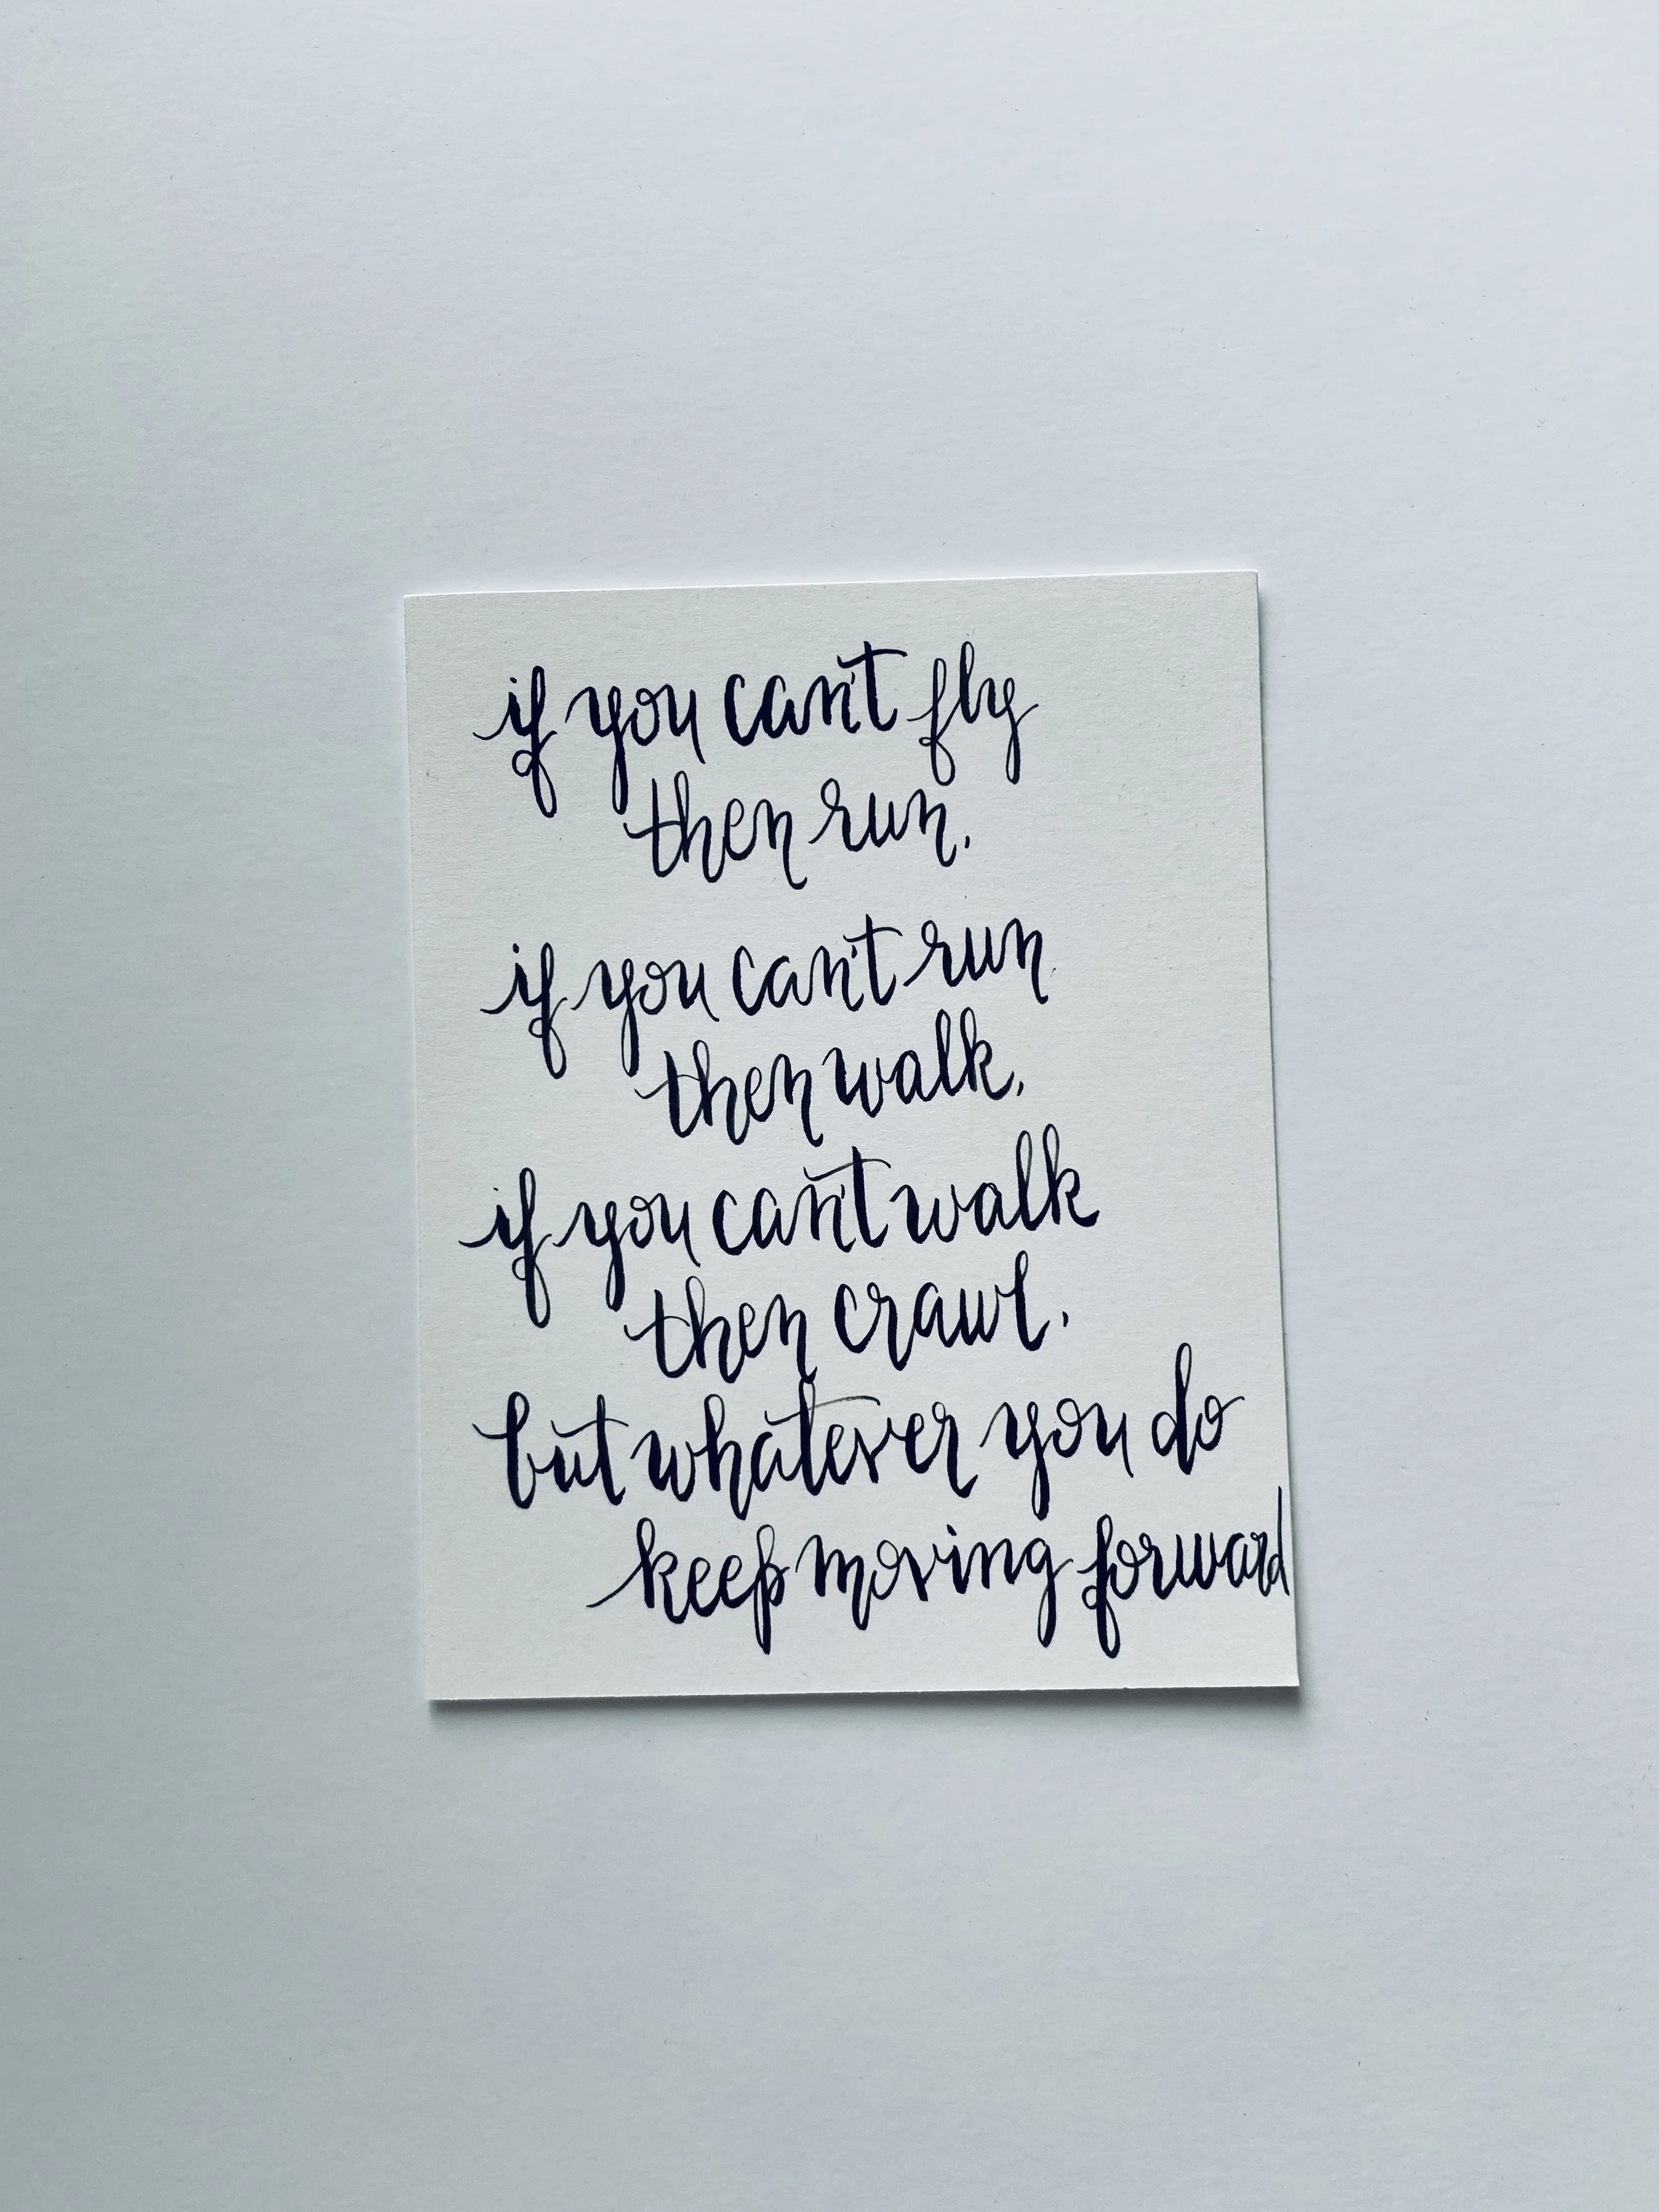 if you can't fly
then run,
if you can't run
then walk,
if you can't walk
then crawl,
but whatever you do
keep moving forward